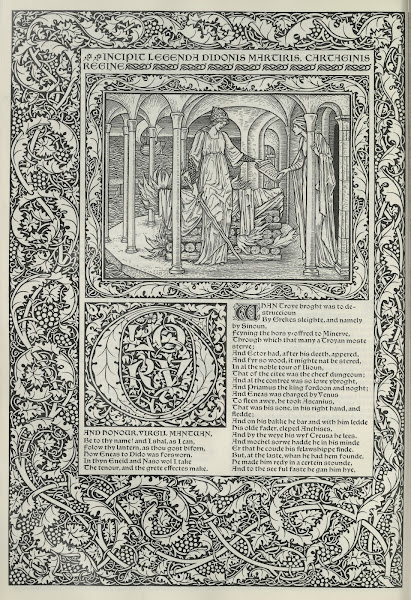 INCIPIT LEGENDA DIDONIS MARTIRIS, CARTAGINIS
REGINE
GLORYE
AND HONOUR, VIRGIL MANTUAN,
Be to thy name! and I shal, as I can,
Folow thy lantern, as thou gost biforn,
How Eneas to Dido was forsworn.
In thyn Eneid and Naso wol I take
The tenour, and the grete effectes make.
WHAN Troye broght was to de-
struccioun
By Grekes sleighte, and namely
by Sinoun,
Feyning the hors y-offred to Minerve,
Through which that many a Troyan moste
sterve,
And Ector had, after his deeth, appered,
And fyr so wood, it mighte nat be stered,
In al the noble tour of Ilioun,
That of the citee was the cheef dungeoun;
And al the contree was so lowe ybroght,
And Priamus the king fordoon and noght;
And Eneas was charged by Venus
To fleen awey, he took Ascanius,
That was his sone, in his right hand, and
fledde;
And on his bakke he bar and with him ledde
His olde fader, cleped Anchises,
And by the weye his wyf Creusa he lees.
And mochel sorwe hadde he in his minde
Er that he coude his felawshippe finde.
But, at the laste, whan he had hem founde,
He made him redy in a certein stounde,
And to the see ful faste he gan him hye,